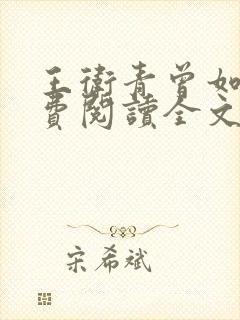 王衛青曾如
費閱讀全文
宋希斌